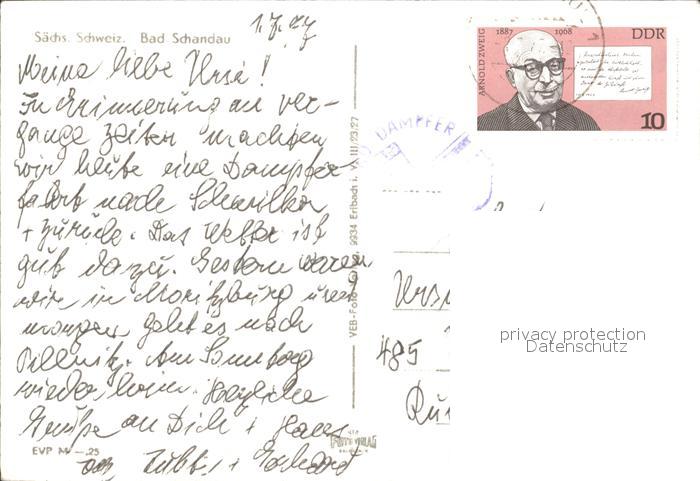 1.7.77
Sächs. Schweiz. Bad Schandau
Meine liebe Ursi!
In Erinnerung an ver-
gange Zeiten machten
wir heute eine Dampfer-
fahrt nach Schmilka
+ zurück. Das Wetter ist
gut dazu. Gestern waren
wir in Moritzburg und
morgen geht es nach
Pillnitz. Am Sonntag
wieder heim. Herzliche
Grüße an Dich + Hans
+ Gerhard
EVP M —.25
VEB-Foto 9934 Erlbach i. V. III/23/27
FOTO VERLAG
ARNOLD ZWEIG
1887 1968
DDR
10
DAMPFER
485
privacy protection
Datenschutz